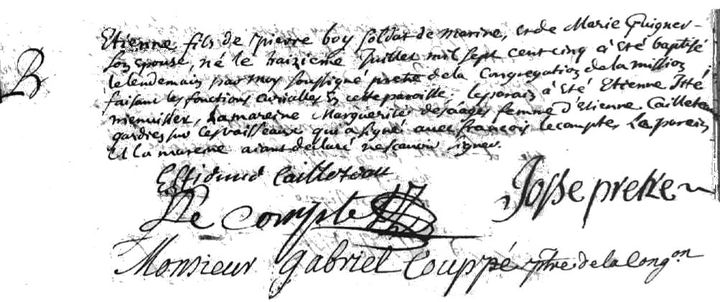 B
Etienne fils de pierre boy soldat de marine, et de Marie Guigner
son epouse, né le traizieme Juillet mil sept cent cinq à été baptisé
le lendemain par moy soussigné pretre de la Congregation de la mission
faisant les fonctions curialles en cette paroisse. le parain à été Etienne
menuisier, La mareine Marguerite femme d'etienne Cailleteau
gardien sur les vaisseaux qui a signé avec francois lecompte, Le parein
et la mareine aiant declaré ne scavoir signer.
Cailleteau
Le Compte
Josse pretre
Monsieur Gabriel Couppé ptre de la Congon